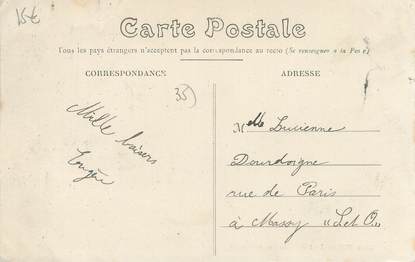 15€
Carte Postale
Tous les pays étrangers n'acceptent pas la correspondance au recto (Se renseigner à la Poste)
CORRESPONDANCE
ADRESSE
35
Mille baisers
Melle Lucienne
Dourdoigne
rue de Paris
à Massy "S et O"